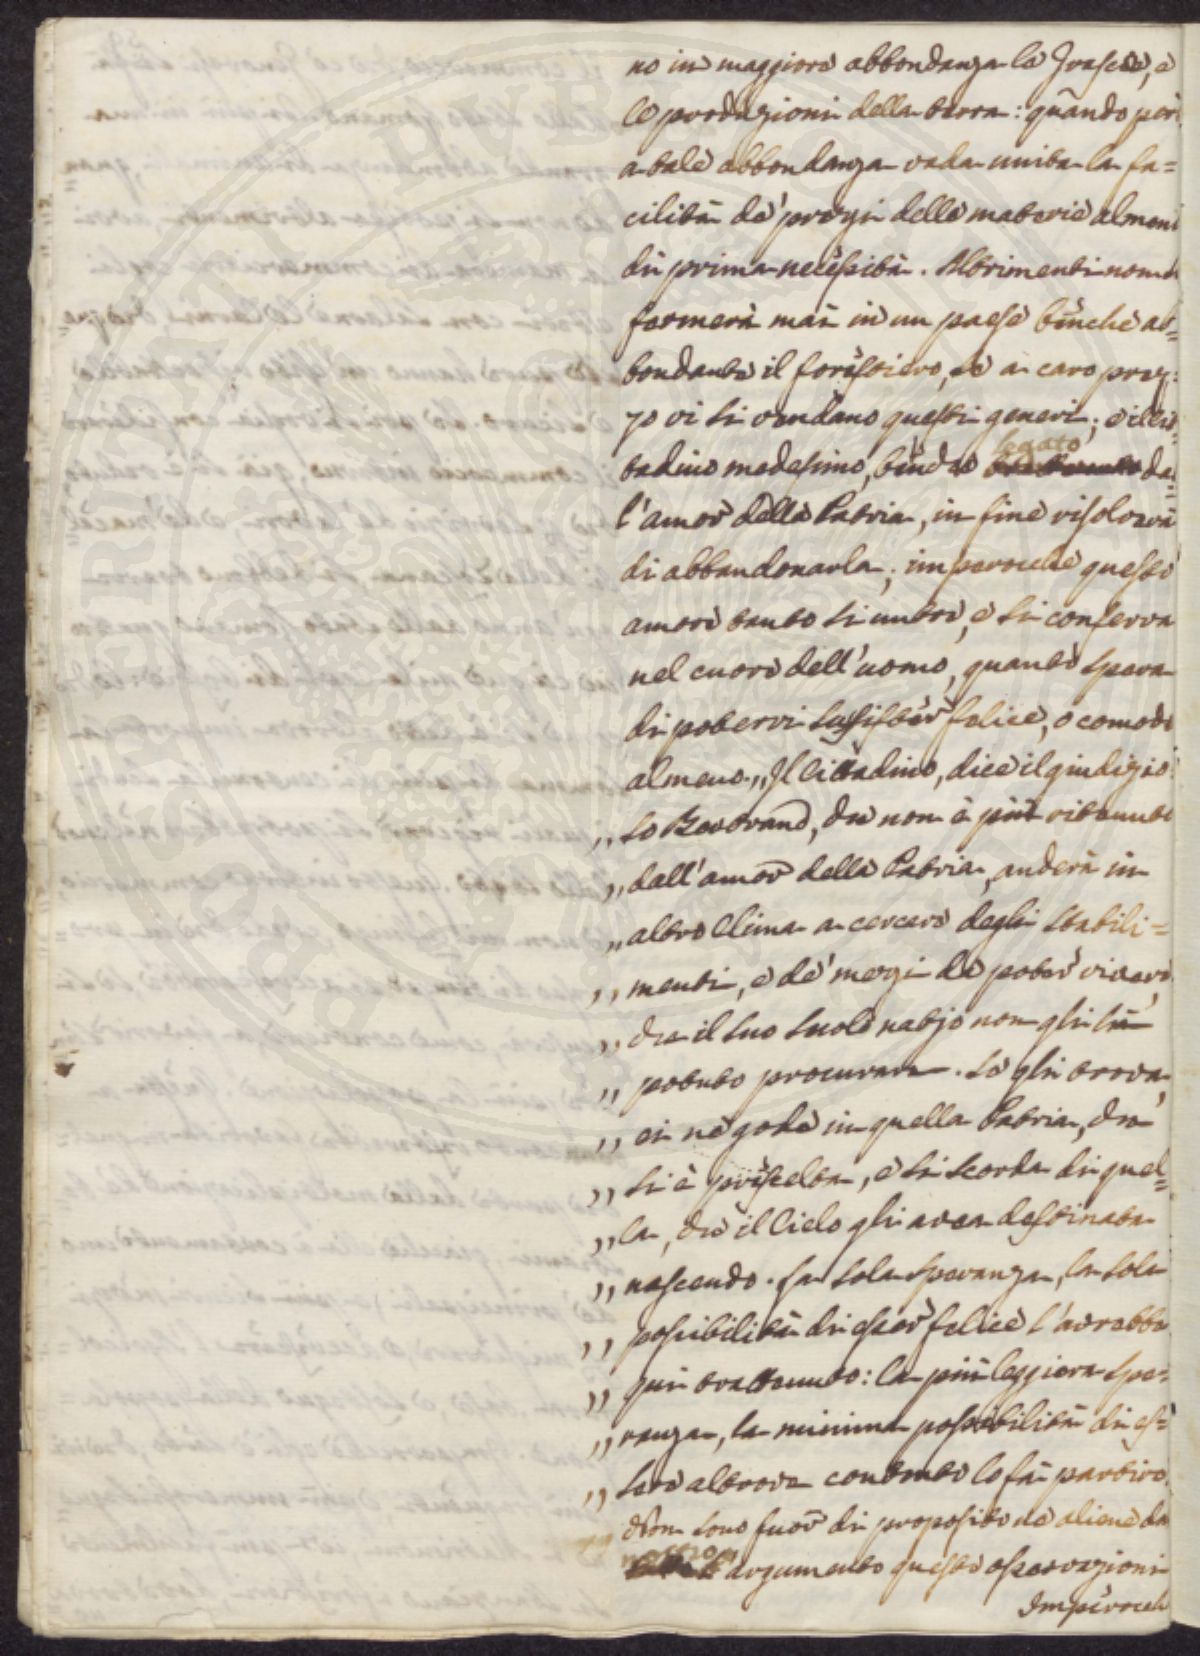 no in maggiore abbondanza le grasce, e
le produzioni della terra: quando però
a tale abbondanza vada unita la fa=
cilità de' prezzi delle materie almeno
di prima necessità. Altrimenti non si
fermerà mai in un paese benche ab=
bondante il forestiero, se a caro prez=
zo vi si vendano questi generi; e il cit=
tadino medesimo, benche legato dal=
l'amor della Patria, in fine risolverà
di abbandonarla; imperocche questo
amore tanto si nutre, e si conserva
nel cuore dell'uomo, quanto spera
di potervi sussister felice, o comodo
almeno. „Il Cittadino, dice il giudizio=
„ so Bertrand, che non è più ritenuto
„ dall'amor della Patria, anderà in
„ altro Clima a cercare degli stabili=
„ menti, e de' mezzi de poter vivere,
„ che il suo suolo natio non gli hà
„ potuto procurare. Se gli trova,
„ ei ne gode in quella Patria, che
„ si è priscelta, e si scorda di quel=
„ la, che il Cielo gli avea destinata
„ nascendo. La sola speranza, la sola
„ possibilità di esser felice l'avrebbe
„ qui trattenuto: la più leggiera spe=
„ ranza, la minima possibilità di es=
„ sere altrove contento lo fà partire.
Non sono fuor di proposito ne aliene da
argumento queste osservazioni
Imperocch